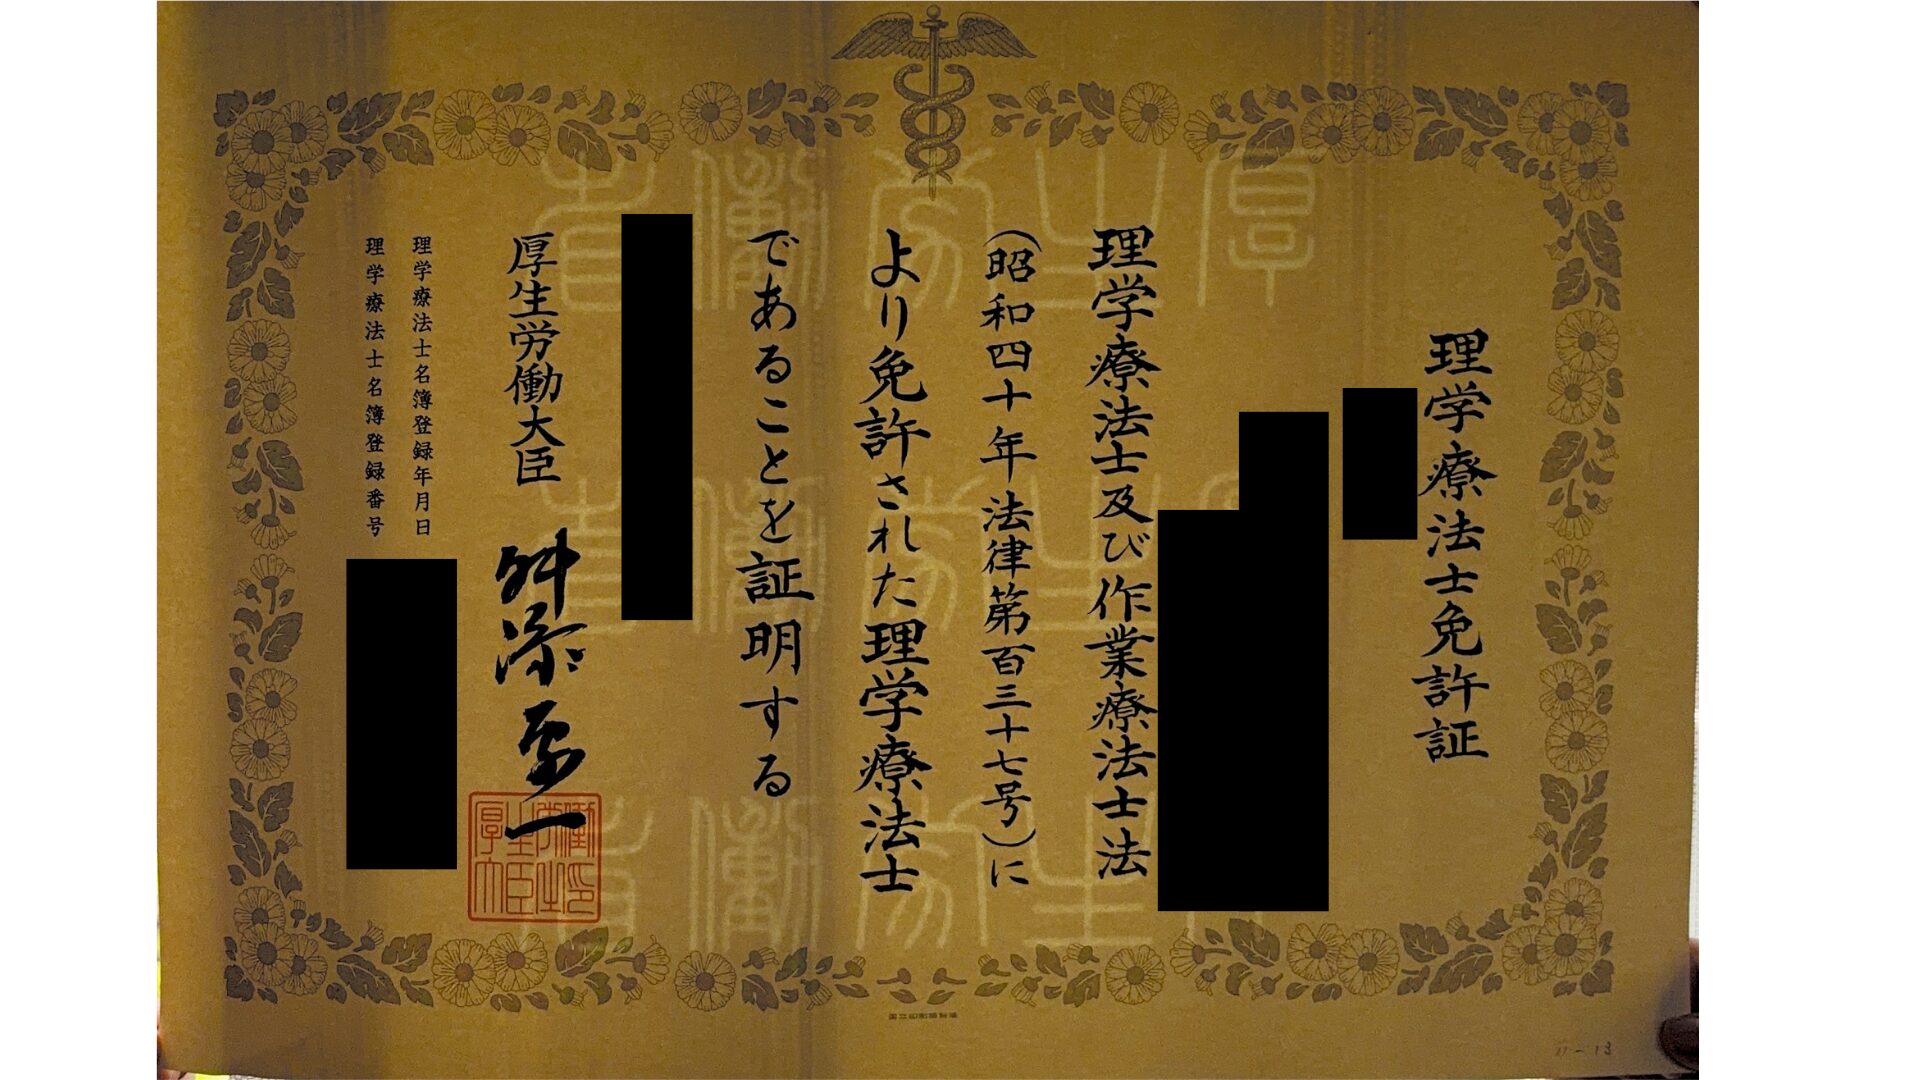 理学療法士免許証
理学療法士及び作業療法士法
(昭和四十年法律第百三十七号)に
より免許された理学療法士
であることを証明する
厚生労働大臣 舛添要一
理学療法士名簿登録年月日
理学療法士名簿登録番号
厚生労働省
国立印刷局製造
11-13